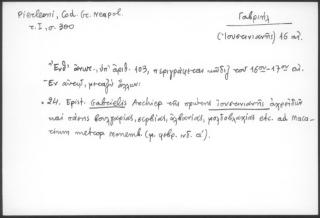 Pierleoni, Cod. Gr. Neapol.
τ. I, σ. 300
Γαβριήλ
(Ἰουστινιανῆς) 16 αἰ.
Ἔνθ' ἀνωτ., ὑπ' ἀριθ. 103, περιγράφεται κῶδιξ τοῦ 16ου-17ου αἰ.
Ἐν αὐτῷ, μεταξὺ ἄλλων:
• 24. Epist. Gabrielis Archiep τῆς πρώτης Ἰουστινιανῆς ἀχριδῶν
καὶ πάσης βουλγαρίας, σερβίας, ἀλβανίας, μολδοβλαχίας etc. ad Maca-
rium metrop monemb. (μ. φεβρ. ινδ. α').